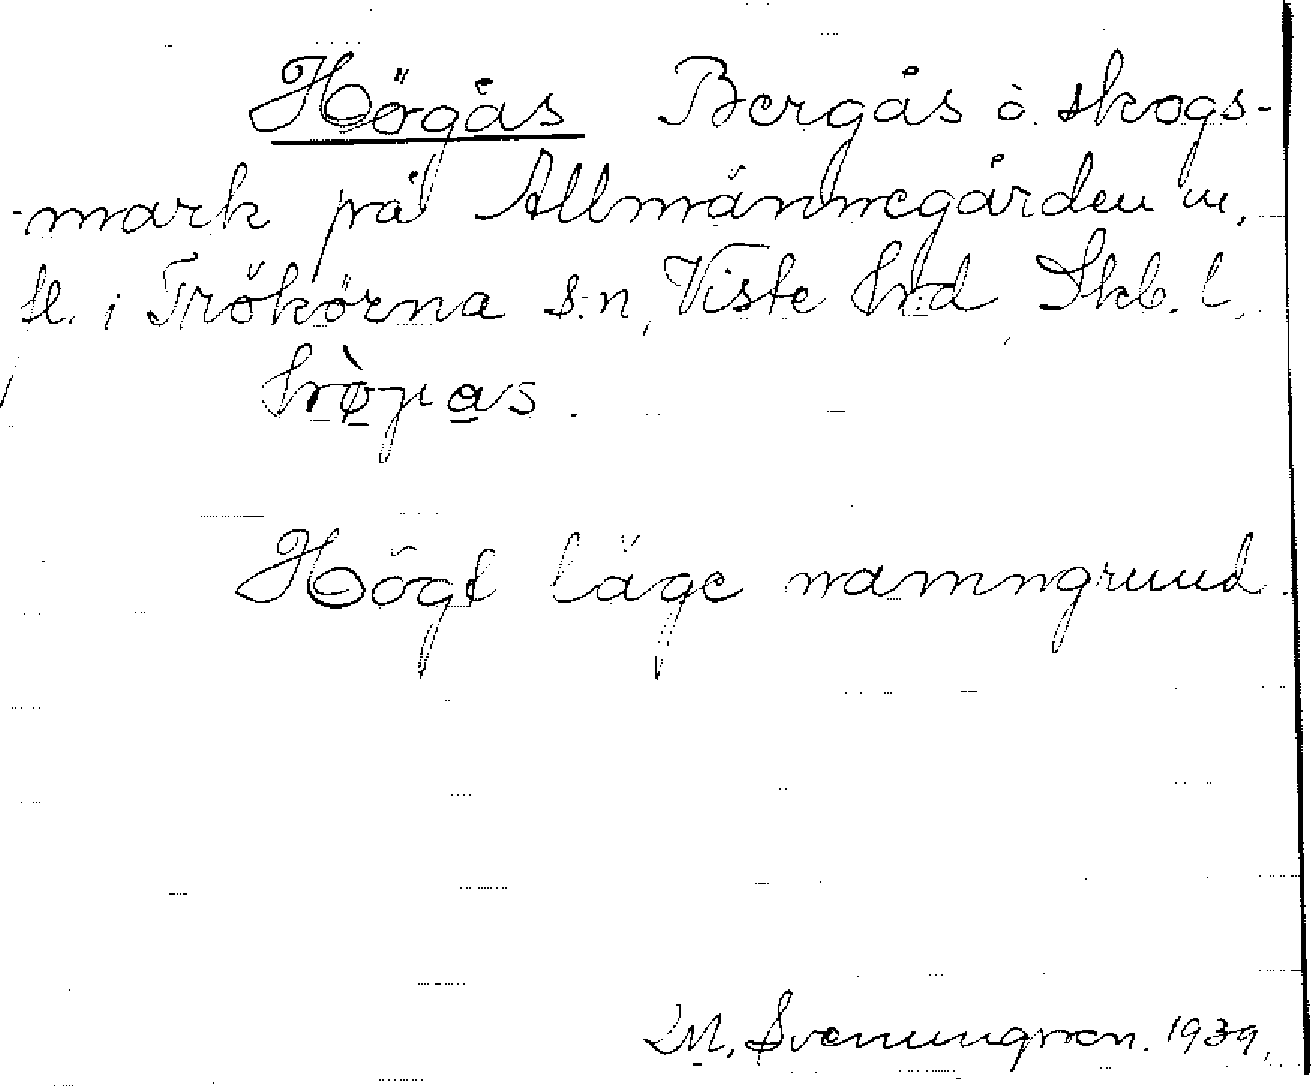 Högås Bergås o. skogs-
-mark på Allmänningården m.
fl. i Trökörna s:n, Viste hrd, Skb. l.
hö̀γas.
Högt läge namngrund.
M. Svenungsson. 1939.